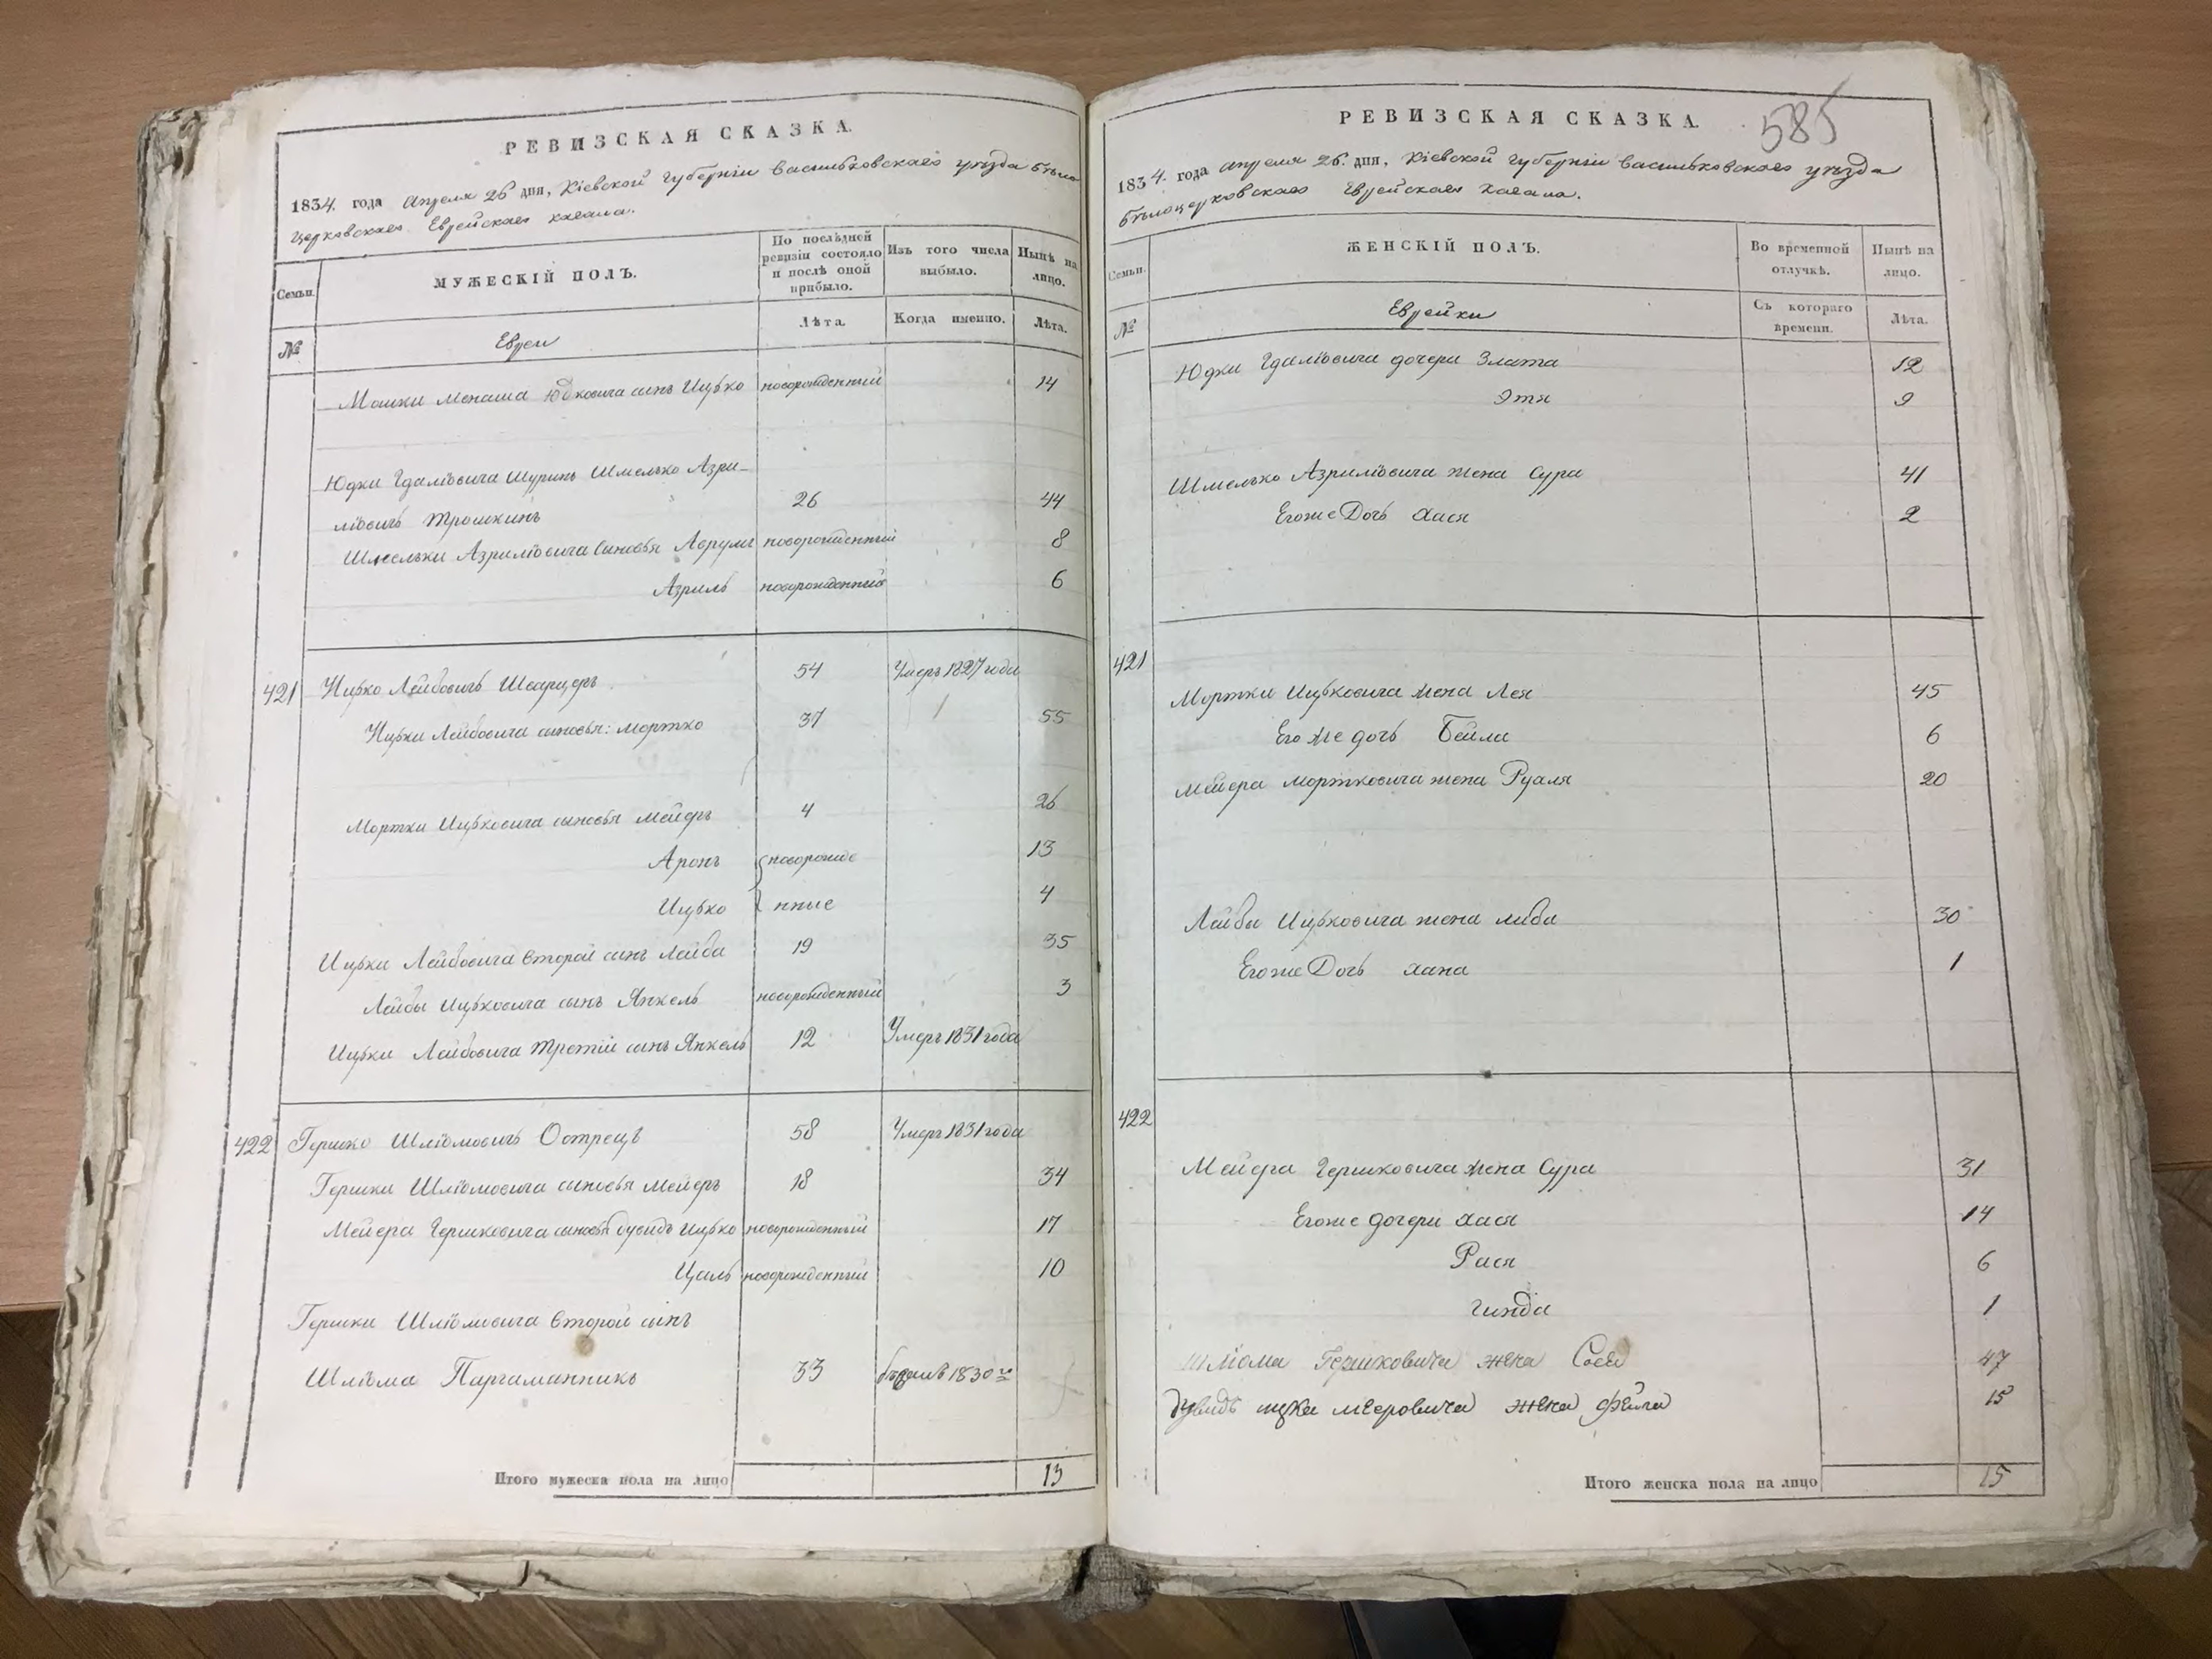 РЕВИЗСКАЯ СКАЗКА.
1834. года Апреля 26 дня, Кіевской Губерніи Васильковскаго уѣзда Бѣло
церковскаго Еврейскаго кагала.
Семьи.
МУЖЕСКІЙ ПОЛЪ.
По послѣдней ревизіи состояло и послѣ оной прибыло.
Изъ того числа выбыло.
Нынѣ на лицо.
№
Евреи
Лѣта.
Когда именно.
Лѣта.
Мошки Менаша Юдковича сынъ Ицько новорожденный 14
Юдки Гдаліовича Шуринъ Шмелько Азри-
ліовичъ Трошкинъ 26 44
Шмельки Азриліовича сыновья Аврумъ новорожденный 8
Азриль новорожденный 6
421 Ицько Лейбовичъ Шварцеръ 54 Умеръ 1827 года
Ицьки Лейбовича сыновья: Мортко 37 55
Мортки Ицьковича сыновья Мейеръ 4 26
Аронъ новорожде 13
Ицько нные 4
Ицьки Лейбовича второй сынъ Лейба 19 35
Лейбы Ицьковича сынъ Янкель новорожденный 3
Ицьки Лейбовича третій сынъ Янкель 12 Умеръ 1831 года
422 Гершко Шліомовичъ Острецъ 58 Умеръ 1831 года
Гершки Шліомовича сыновья Мейеръ 18 34
Мейера Гершковича сыновья Дувидъ Ицько новорожденный 17
Цаль новорожденный 10
Гершки Шліомовича второй сынъ
Шліома Паргаманникъ 33 1830
Итого мужеска пола на лицо 13
РЕВИЗСКАЯ СКАЗКА. 585
1834. года апреля 26. дня, Кіевской Губерніи Васильковскаго уѣзда
Бѣлоцерковскаго Еврейскаго кагала.
Семьи.
ЖЕНСКІЙ ПОЛЪ.
Во временной отлучкѣ.
Нынѣ на лицо.
№
Еврейки
Съ котораго времени.
Лѣта.
Юдки Гдаліовича дочери Злата 12
Этя 9
Шмелько Азриліовича жена Сура 41
Егоже Дочь Хася 2
421
Мортки Ицьковича жена Лея 45
Его же дочь Бейла 6
Мейера Мортковича жена Рухля 20
Лейбы Ицьковича жена Либа 30
Егоже Дочь Хана 1
422
Мейера Гершковича жена Сура 31
Егоже дочери Хася 14
Рася 6
Гинда 1
Шліома Гершковича жена 47
Дувидъ ицка меировича жена Фейга 15
Итого женска пола на лицо 15